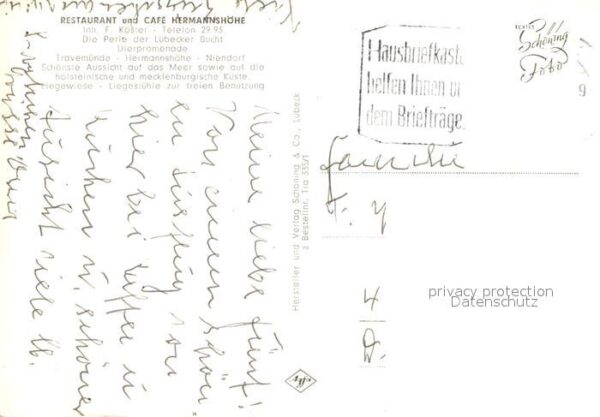 RESTAURANT und CAFÉ HERMANNSHÖHE
Inh. F. Koster - Telefon 29 95
Die Perle der Lübecker Bucht
Uferpromenade
Travemünde - Hermannshöhe - Niendorf
Schönste Aussicht auf das Meer sowie auf die
holsteinische und mecklenburgische Küste.
Liegewiese - Liegestühle zur freien Benutzung
Hausbriefkäst
helfen Ihnen u
dem Briefträge
ECHTES
Schöning
Foto
Hersteller und Verlag Schöning & Co., Lübeck
z Bestellnr. Tra 555/1
Meine liebe
Von einem schön
en Ausflug von
hier bei Kaffee u
Kuchen u. schöner
Aussicht viele lb.
4
privacy protection
Datenschutz
Agfa